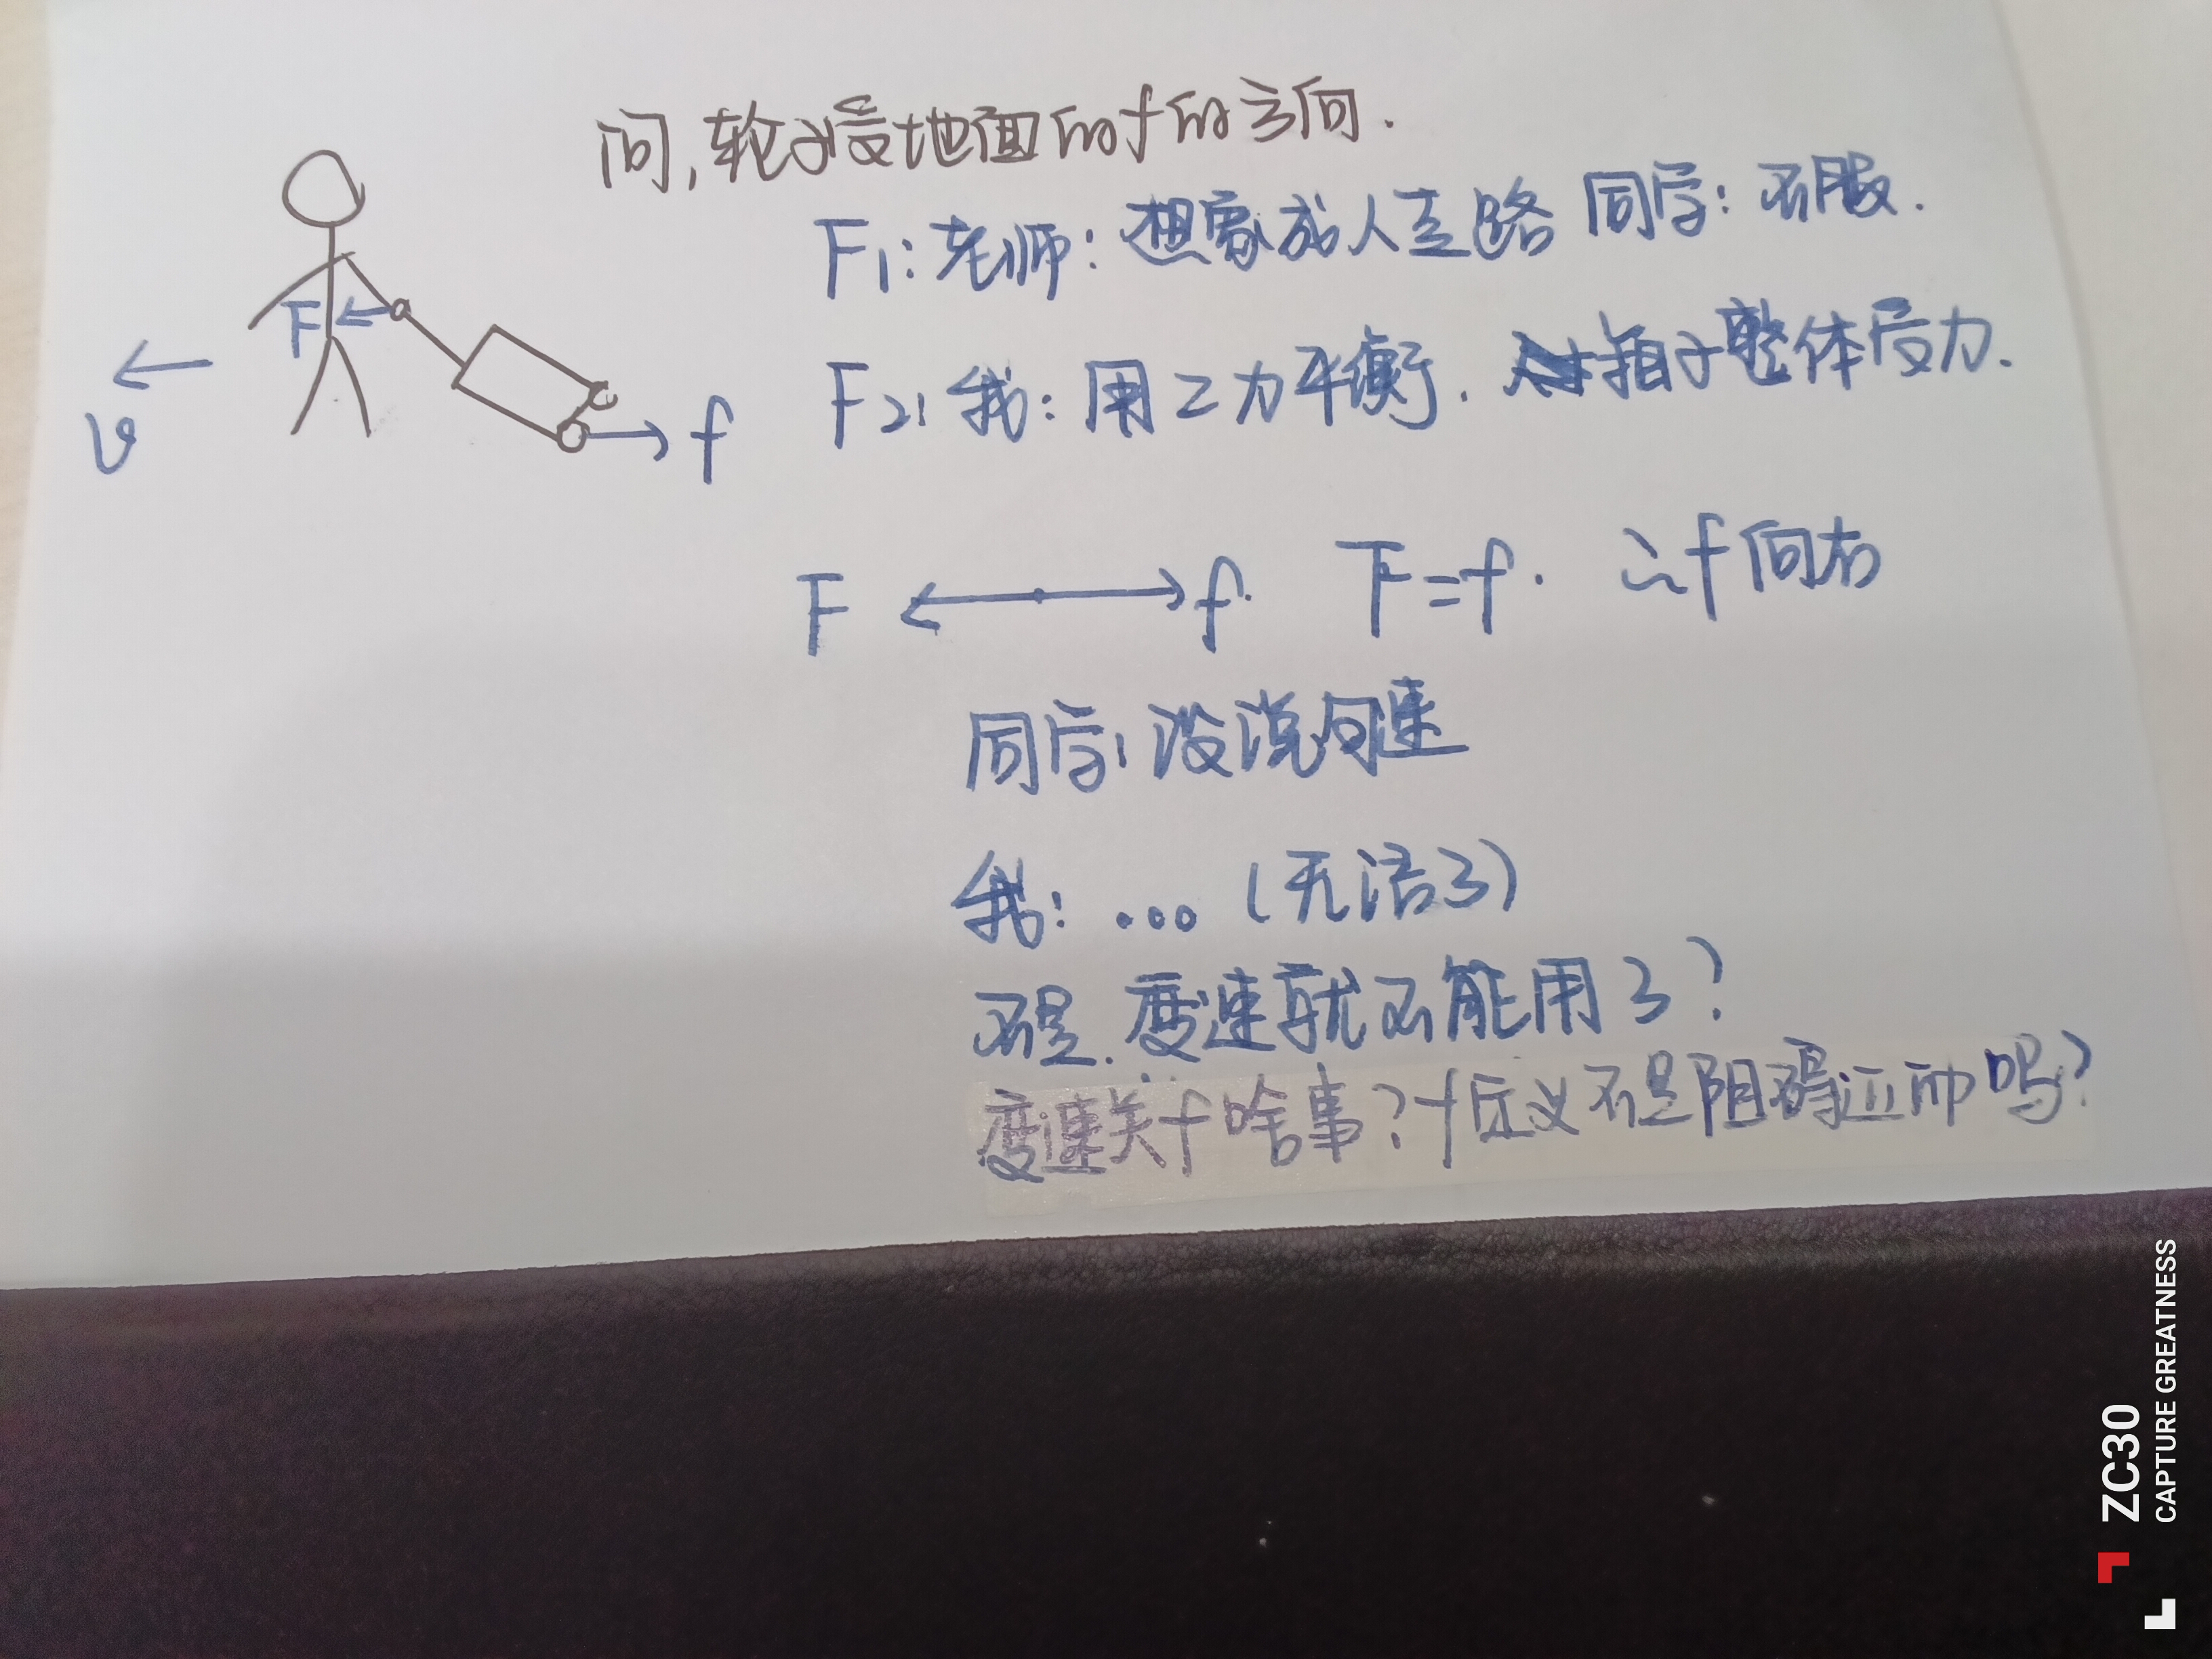 问,轮子受地面的f的方向.
F1:老师:想象成人走路 同学:不服.
F2:我:用二力平衡. 箱子整体受力.
F
v
f
F f. F=f. ∴f向右
同学:没说匀速
我:...(无语了)
不是.变速就不能用了?
变速关f啥事?f定义不是阻碍运动吗?
ZC30
CAPTURE GREATNESS